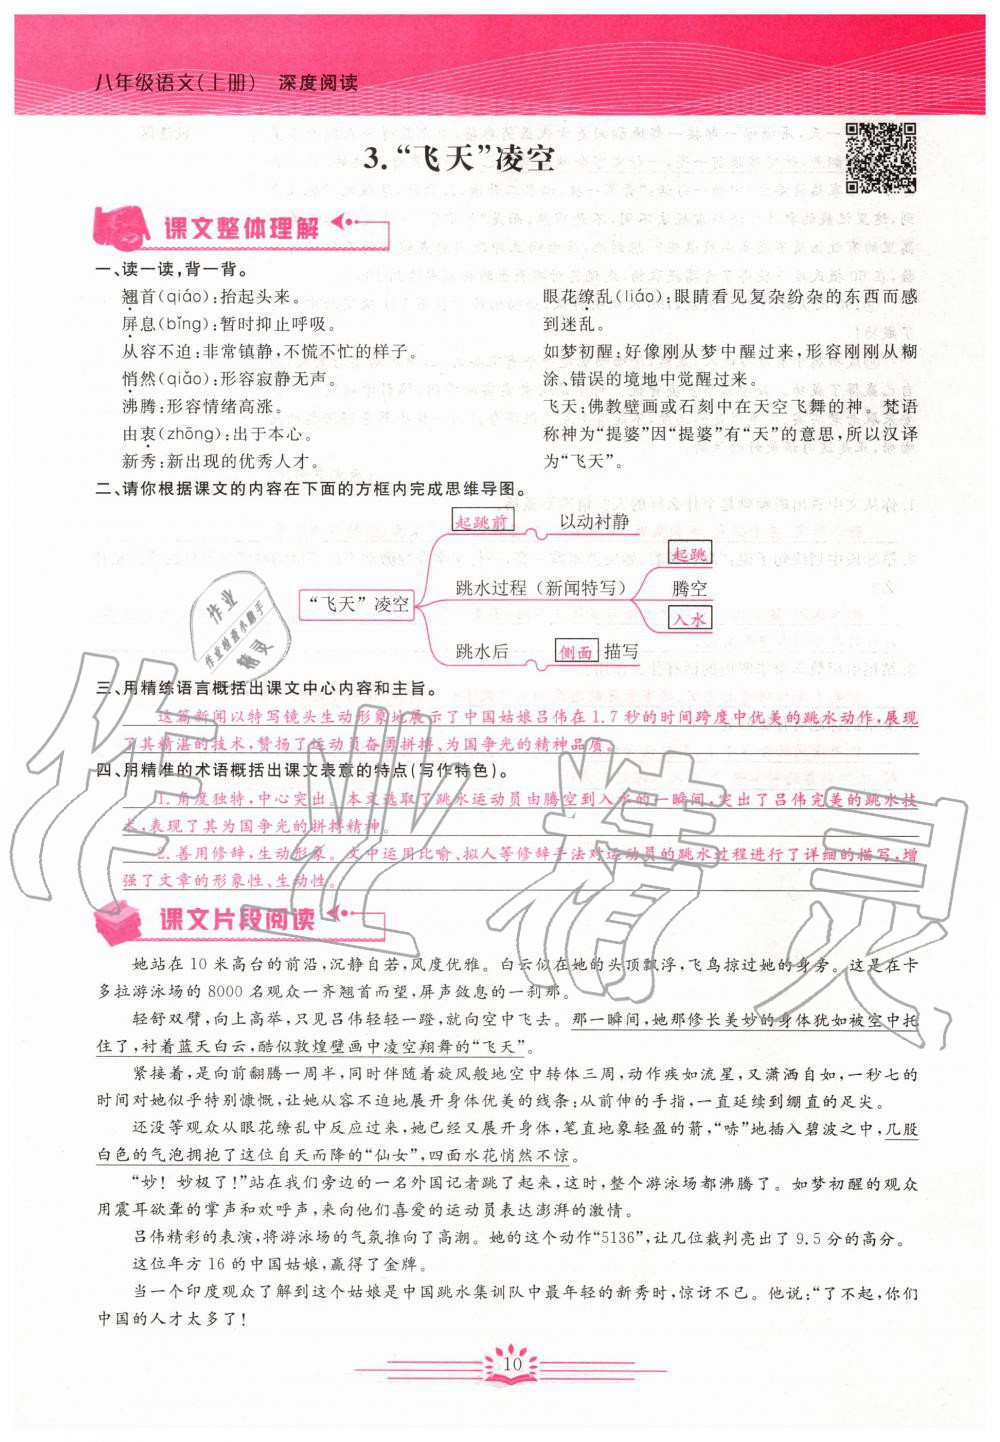 八年级语文(上册) 深度阅读
3.“飞天”凌空
课文整体理解
一、读一读,背一背。
翘首(qiáo):抬起头来。
屏息(bǐng):暂时抑止呼吸。
从容不迫:非常镇静,不慌不忙的样子。
悄然(qiǎo):形容寂静无声。
沸腾:形容情绪高涨。
由衷(zhōng):出于本心。
新秀:新出现的优秀人才。
眼花缭乱(liáo):眼睛看见复杂纷杂的东西而感
到迷乱。
如梦初醒:好像刚从梦中醒过来,形容刚刚从糊
涂、错误的境地中觉醒过来。
飞天:佛教壁画或石刻中在天空飞舞的神。梵语
称神为“提婆”因“提婆”有“天”的意思,所以汉译
为“飞天”。
二、请你根据课文的内容在下面的方框内完成思维导图。
起跳前 以动衬静
起跳
“飞天”凌空 跳水过程(新闻特写) 腾空
入水
跳水后 侧面 描写
三、用精练语言概括出课文中心内容和主旨。
这篇新闻以特写镜头生动形象地展示了中国姑娘吕伟在1.7秒的时间跨度中优美的跳水动作,展现
了其精湛的技术,赞扬了运动员奋勇拼搏、为国争光的精神品质。
四、用精准的术语概括出课文表意的特点(写作特色)。
1.角度独特,中心突出。本文选取了跳水运动员由腾空到入水的一瞬间,突出了吕伟完美的跳水技
术,表现了其为国争光的拼搏精神。
2.善用修辞,生动形象。文中运用比喻、拟人等修辞手法对运动员的跳水过程进行了详细的描写,增
强了文章的形象性、生动性。
课文片段阅读
她站在10米高台的前沿,沉静自若,风度优雅。白云似在她的头顶飘浮,飞鸟掠过她的身旁。这是在卡
多拉游泳场的8000名观众一齐翘首而望,屏声敛息的一刹那。
轻舒双臂,向上高举,只见吕伟轻轻一蹬,就向空中飞去。那一瞬间,她那修长美妙的身体犹如被空中托
住了,衬着蓝天白云,酷似敦煌壁画中凌空翔舞的“飞天”。
紧接着,是向前翻腾一周半,同时伴随着旋风般地空中转体三周,动作疾如流星,又潇洒自如,一秒七的
时间对她似乎特别慷慨,让她从容不迫地展开身体优美的线条:从前伸的手指,一直延续到绷直的足尖。
还没等观众从眼花缭乱中反应过来,她已经又展开身体,笔直地象轻盈的箭,“哧”地插入碧波之中,几股
白色的气泡拥抱了这位自天而降的“仙女”,四面水花悄然不惊。
“妙!妙极了!”站在我们旁边的一名外国记者跳了起来,这时,整个游泳场都沸腾了。如梦初醒的观众
用震耳欲聋的掌声和欢呼声,来向他们喜爱的运动员表达澎湃的激情。
吕伟精彩的表演,将游泳场的气氛推向了高潮。她的这个动作“5136”,让几位裁判亮出了9.5分的高分。
这位年方16的中国姑娘,赢得了金牌。
当一个印度观众了解到这个姑娘是中国跳水集训队中最年轻的新秀时,惊讶不已。他说:“了不起,你们
中国的人才太多了!
10
作业精灵
作业
作业检查小助手
精灵